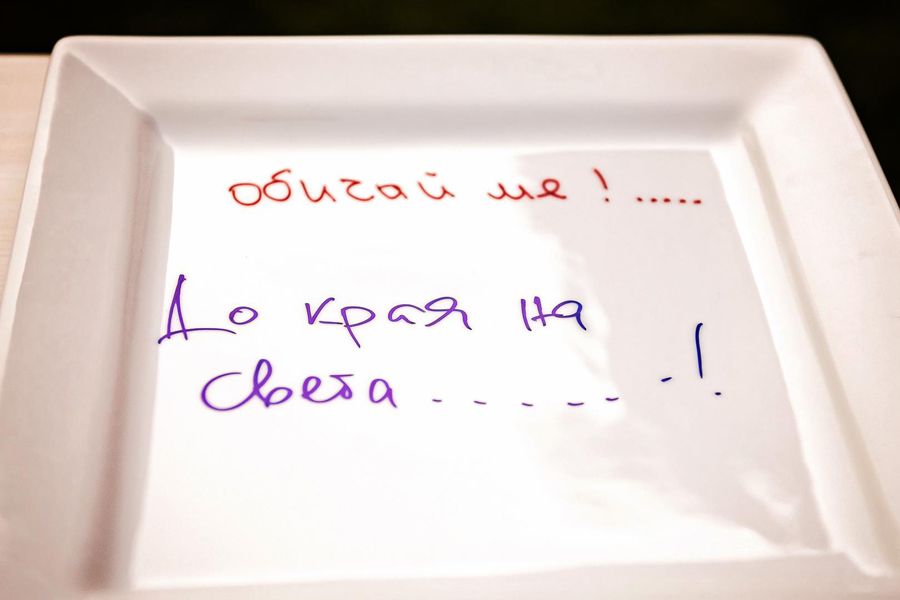 обичай ме!.....
До края на
света ..... -!